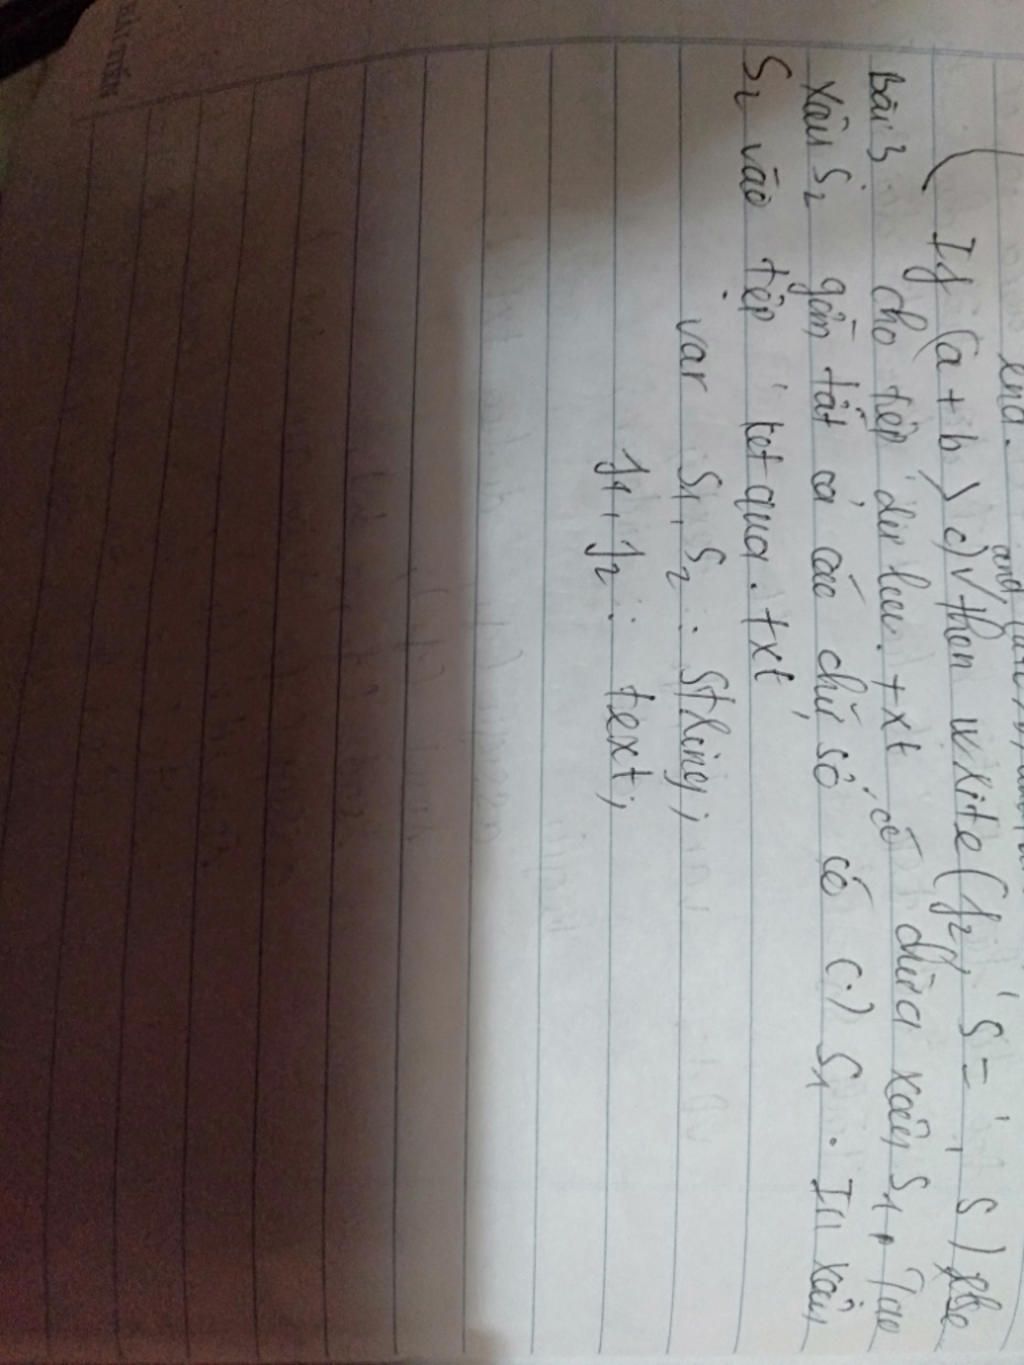 end.
and
If (a + b > c) then write (f2, 'S = ', S) else
Bài 3 cho tệp dữ liệu.txt có chứa xâu S1. Tạo
xâu S2 gồm tất cả các chữ số có (.) S1. In xâu
S2 vào tệp ketqua.txt
var S1, S2 : String;
f1, f2 : text;